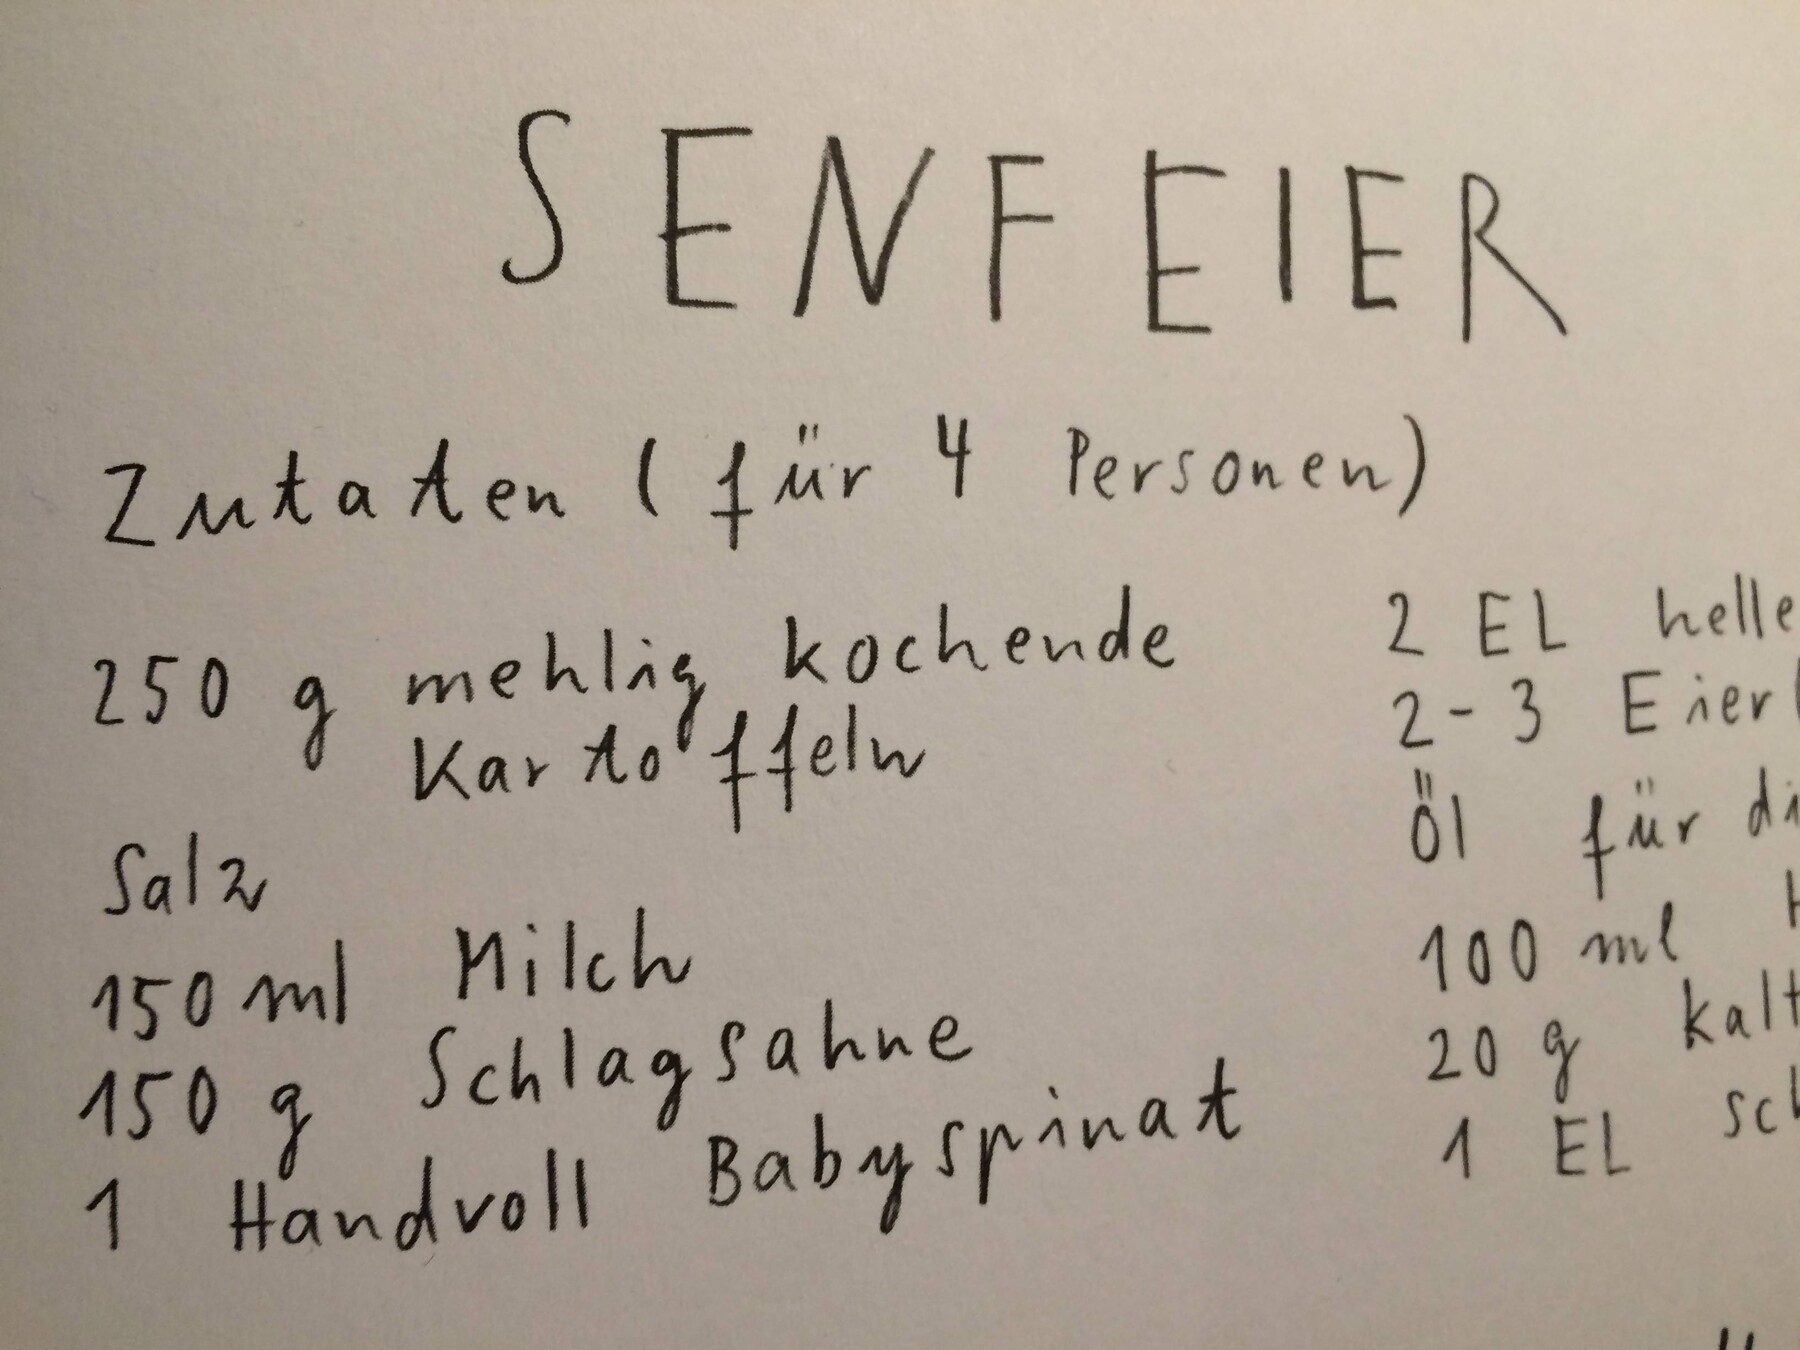 SENFEIER
Zutaten (für 4 Personen)
250 g mehlig kochende
Kartoffeln
Salz
150 ml Milch
150 g Schlagsahne
1 Handvoll Babyspinat
2 EL helle
2-3 Eier(
Öl für di
100 ml H
20 g kalt
1 EL sch